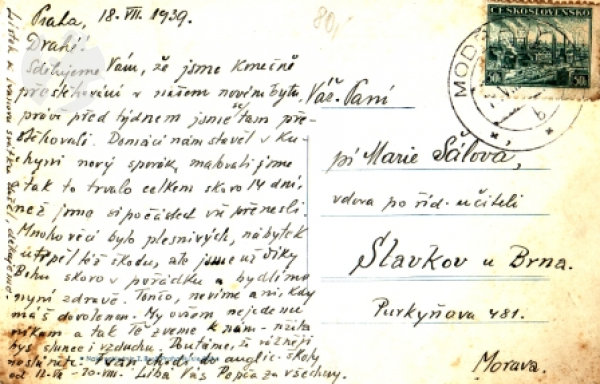 Praha, 18. VII. 1939.
80,-
Drahé!
Sdělujeme Vám, že jsme konečně
přestěhováni v našem novém bytu,
právě před týdnem jsme se tam pře-
stěhovali. Domácí nám stavěl v ku-
chyni nový sporák, malovali jsme
a tak to trvalo celkem skoro 14 dní,
než jsme si počásteč vše přenesli.
Mnoho věcí bylo plesnivých, nábytek
utrpěl též škodu, ale jsme už díky
Bohu skoro v pořádku a bydlíme
nyní zdravě. Tončo, nevíme ani, kdy
máš dovolenou. My ovšem nejedeme
nikam a tak Tě zveme k nám
slunce i vzduchu. Doufáme, že
Ivan chodí do anglic. školy
od 12-VII - 30-VIII. Líbá Vás Pepča za všechny.
Váž. Paní
pí Marie Šálová,
vdova po říd. učiteli
Slavkov u Brna.
Purkyňova 481.
Morava.
ČESKOSLOVENSKO
50h 50h